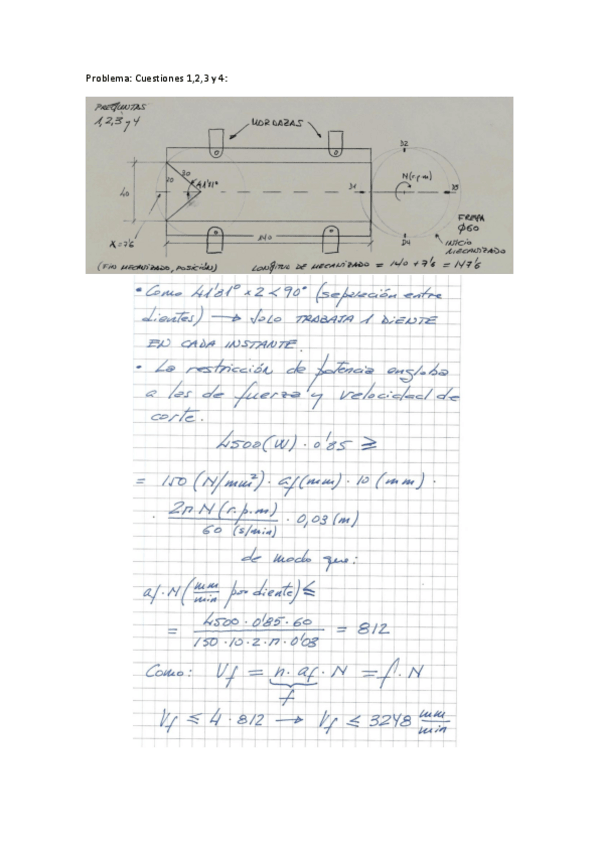 Problema: Cuestiones 1,2,3 y 4:
PREGUNTAS
1,2,3 y 4
MORDAZAS
D2
N(r.p.m)
30
20
41'81°
40
D1
D3
FRESA
Φ60
X=7'6
140
D4
INICIO
MECANIZADO
(FIN MECANIZADO, POSICIÓN)
LONGITUD DE MECANIZADO = 140 + 7'6 = 147'6
• Como 41'81° x 2 < 90° (separación entre
dientes) → SOLO TRABAJA 1 DIENTE
EN CADA INSTANTE.
• La restricción de potencia engloba
a las de fuerza y velocidad de
corte.
4500(W) · 0'85 ≥
= 150 (N/mm²) · af(mm) · 10 (mm) ·
· 2π N (r.p.m) / 60 (s/min) · 0,03 (m)
de modo que:
af·N (mm/min por diente) ≤
= 4500 · 0'85 · 60 / 150 · 10 · 2 · π · 0'03 = 812
Como: Vf = n · af · N = f · N
f
Vf ≤ 4 · 812 → Vf ≤ 3248 mm/min